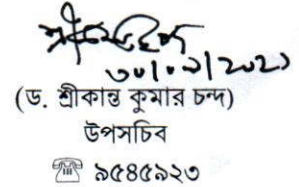 ৩০/০৯/২০২১
(ড. শ্রীকান্ত কুমার চন্দ)
উপসচিব
☎ ৯৫৪৫৯২৩